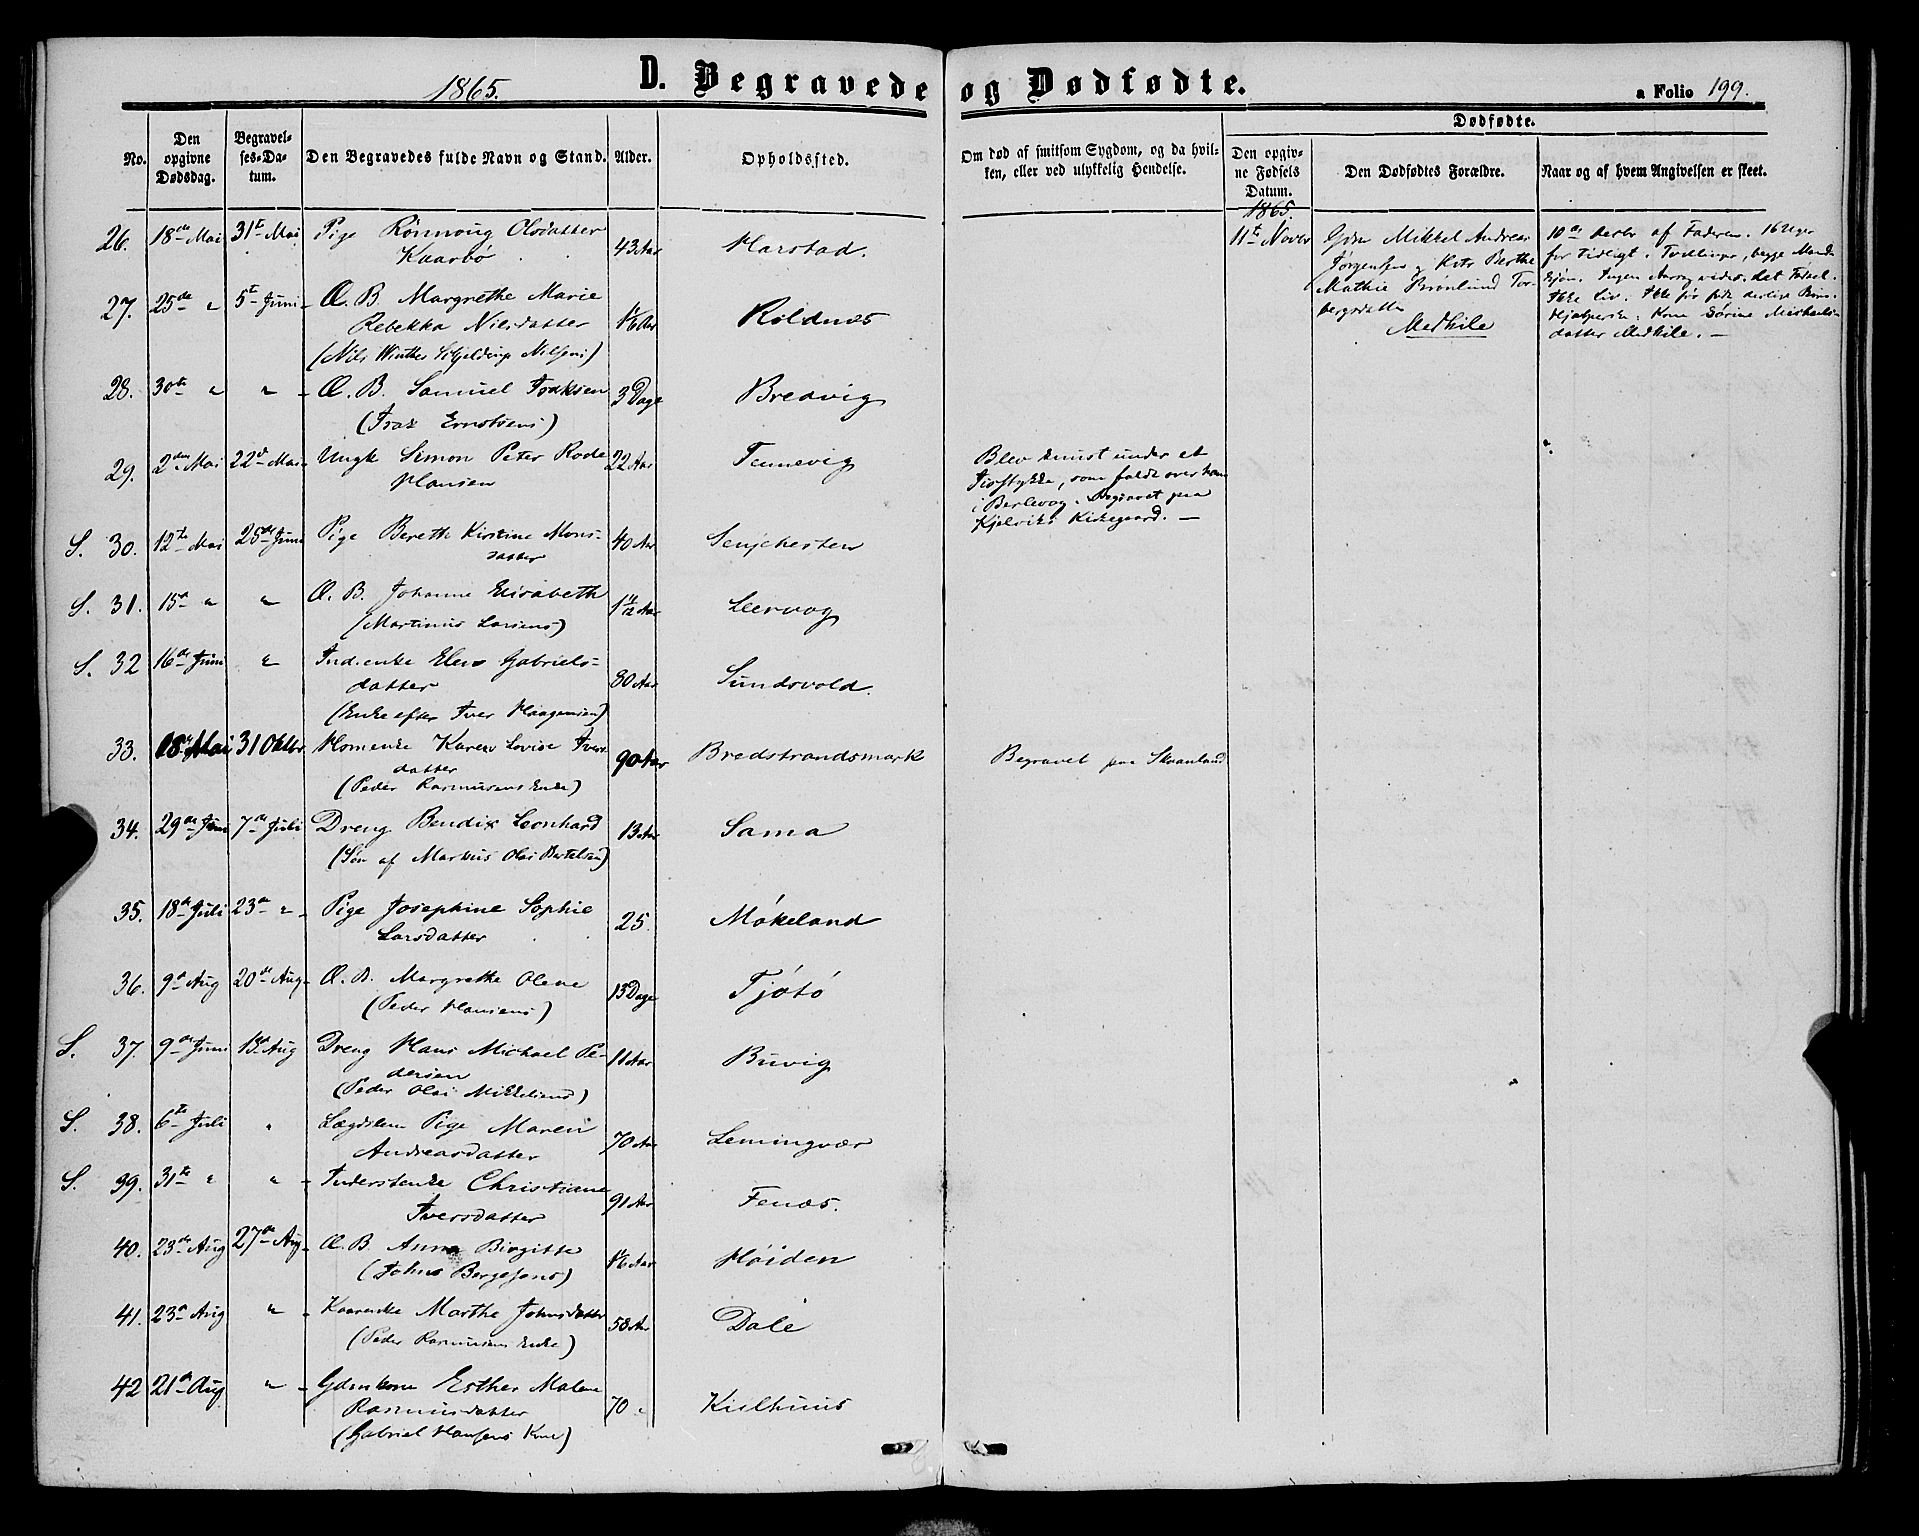 1865.
D. Begravede og Dødfødte.
a Folio 199.
No.
Den opgivne Dødsdag.
Begravelses-Datum.
Den Begravedes fulde Navn og Stand.
Alder.
Opholdssted.
Om død af smitsom Sygdom, og da hvilken, eller ved ulykkelig Hendelse.
Dødfødte.
Den opgivne Fødsels Datum.
Den Dødfødtes Forældre.
Naar og af hvem Angivelsen er skeet.
26. 18de Mai 31te Mai Pige Rønnoug Olsdatter 43 Aar Harstad.
Kaarbø
27. 25de " 5te Juni Æ. B. Margrethe Marie 1/6 Aar Røldnes
Rebekka Nilsdatter
(Nils Winther Nilsens)
28. 30te " " Æ. B. Samuel 3 Dage Bredvig
Ernstsens)
29. 2den Mai 22de Mai Ungk Simon Peter Rode 22 Aar Tennevig
Hansen
Blev knust under et
som faldt over ham
i Berlevog. Begravet paa
Kjelviks Kirkegaard. —
S. 30. 12te Mai 25de Juni Pige Bereth Kirstine Mons- 40 Aar Senjehesten
datter
S. 31. 15de " " Æ. B. Johanne Elisabeth 1 11/12 Aar Leervog
(Martinus Larsens)
S. 32 16de Juni " Ind.enke Elen Gabriels- 80 Aar Sundsvold.
datter
(Enke efter Iver Haagensen)
33. 18de Mai 31 Oktbr. Karen Lovise Ivers 90 Aar Bredstrandsmark Begravet paa Skaanland
datter
(Peder Rasmusens Enke)
34. 29de Juni 7de Juli Dreng Bendix Leonhard 13 Aar Sama
(Søn af Markus Olai Bertelsen)
35. 18de Juli 23de " Pige Josephine Sophie 25. Møkeland
Larsdatter
36. 9de Aug 20de Aug. Æ. B. Margrethe Olene 13 Dage Tjøtø
(Peder Hansens)
S. 37. 9de Juni 13de Aug Dreng Hans Michael Pe- 11 Aar Buvig
dersen
(Peder Olai Mikkelsens)
S. 38. 6te Juli " Lægdslem Pige Maren 70 Aar Lemingvær
Andreasdatter
S. 39. 31te " " Inderstenke Christiane 91 Aar Fenæs.
Iversdatter
40. 23de Aug 27de Aug. Æ. B. Anna Birgitte 1/6 Aar Høiden
(Johns Bergesens)
41. 23de Aug " Kaarenke Marthe Johnsdatter 58 Aar Dale
(Peder Rasmusens Enke)
42 21de Aug " Gdmkone Esther Malene 70 " Kiilhuus
Rasmusdatter
(Gabriel Hansens Kone)
1865.
11te Novbr
Gdm Mikkel Andreas
Jørgensen og Kstr Berthe
Mathie Brønlund Tor-
bergsdatter
Medkile
10de Decbr af Faderen. 16 Uger
for tidligt. Tvillinger, begge Mand-
kjøn. Ingen
Liv.
Hjælperske: Kone Sørine Michaels-
datter Medkile. —